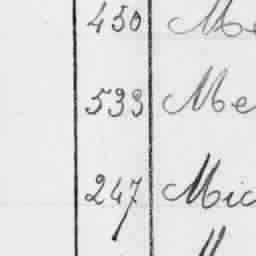 450 Me
533 Me
247 Mic